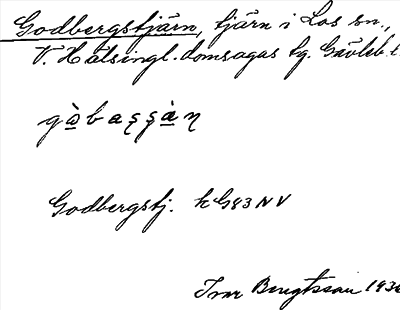 Godbergstjärn, tjärn i Los sn.,
V. Hälsingl. domsagas tg. Gävleb. l.
Godbergstj. hG83NV
Ivar Bengtsson 193